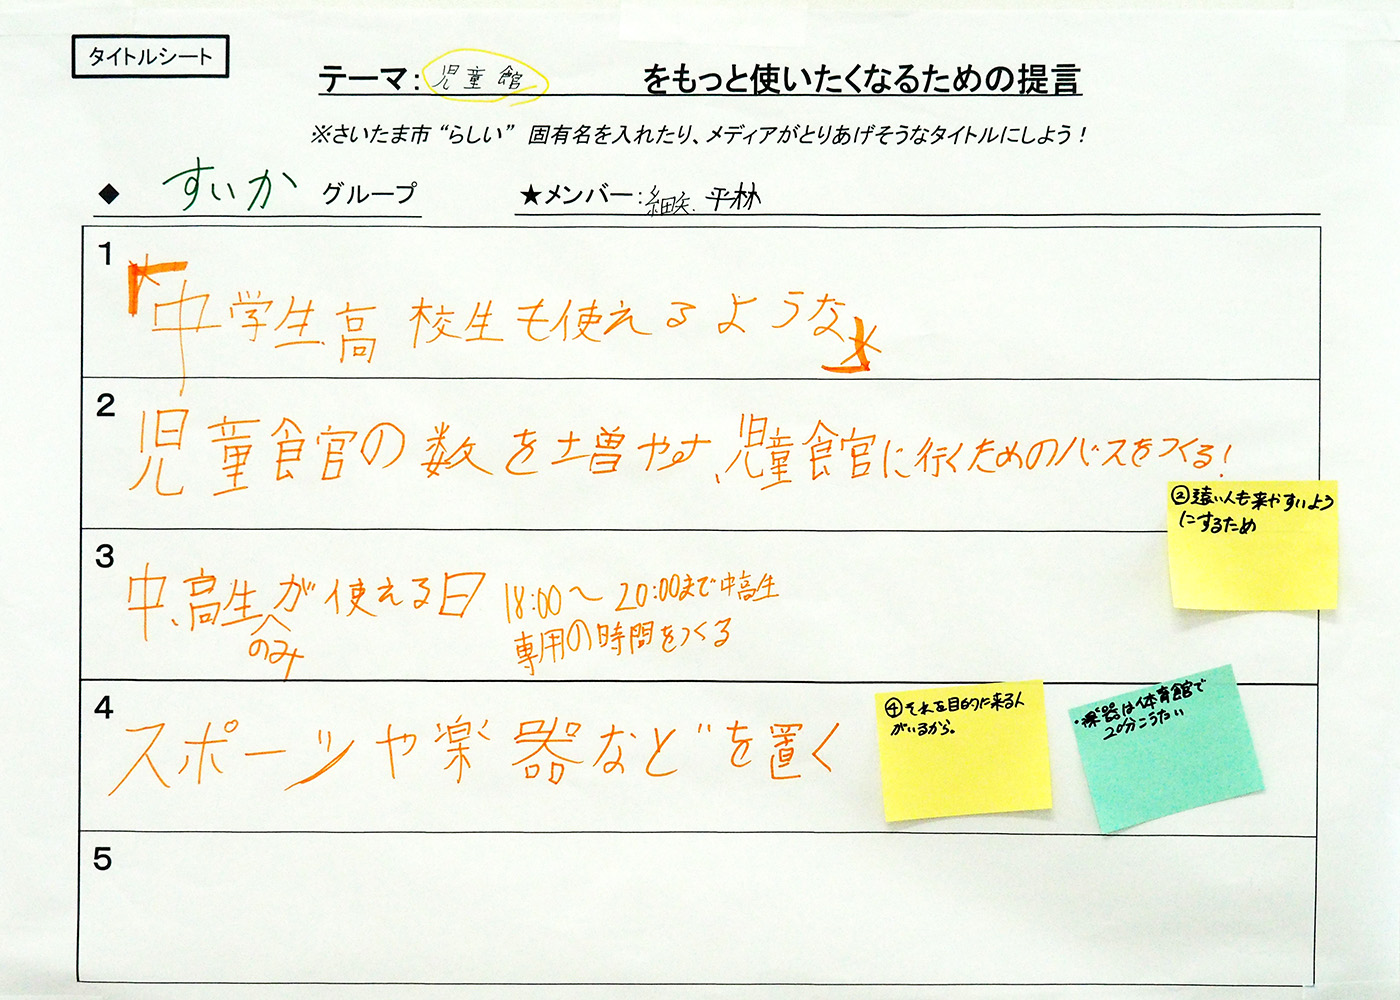 タイトルシート
テーマ:児童館 をもっと使いたくなるための提言
※さいたま市“らしい” 固有名を入れたり、メディアがとりあげそうなタイトルにしよう!
◆ すいか グループ ★メンバー:細矢. 平林
1
『中学生高校生も使えるような』
2
児童館の数を増やす、児童館に行くためのバスをつくる!
②遠い人も来やすいよう
にするため
3
中、高生が使える日 18:00~20:00まで中高生
のみ 専用の時間をつくる
4
スポーツや楽器などを置く
④それを目的に来る人
がいるから。
・楽器は体育館で
20分こうたい
5